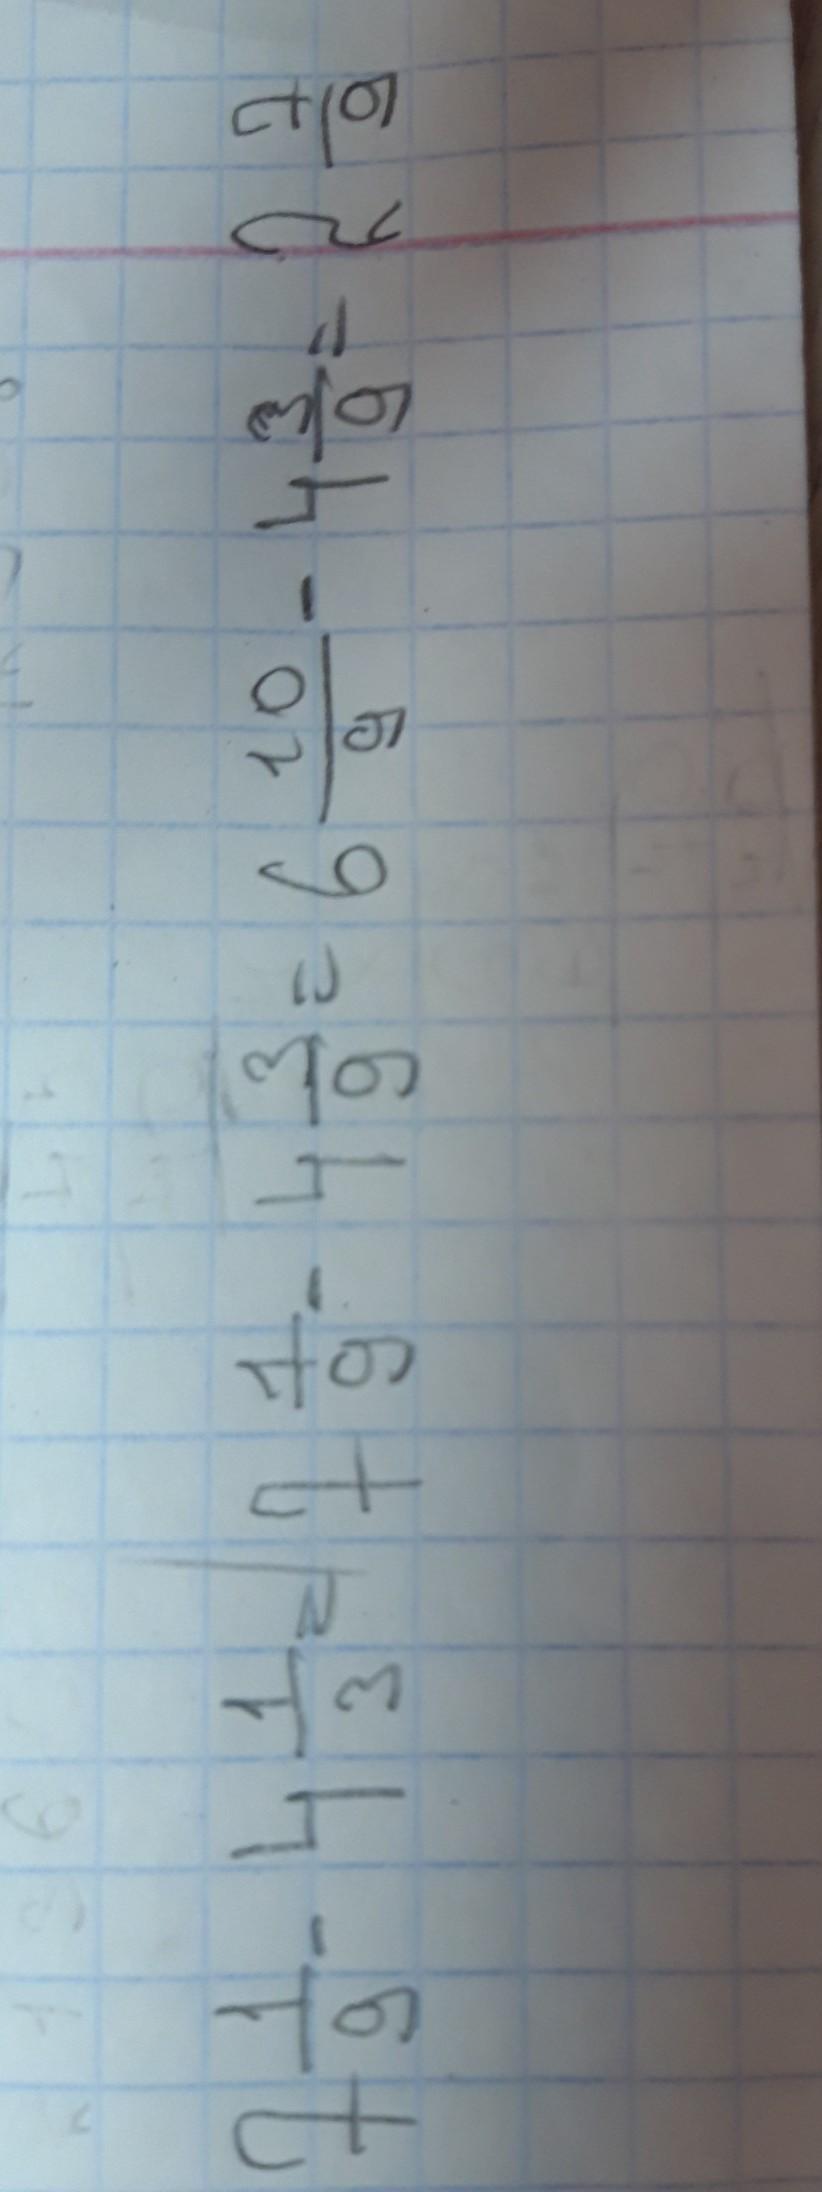 7 1/9 - 4 1/3 = 7 1/9 - 4 3/9 = 6 10/9 - 4 3/9 = 2 7/9